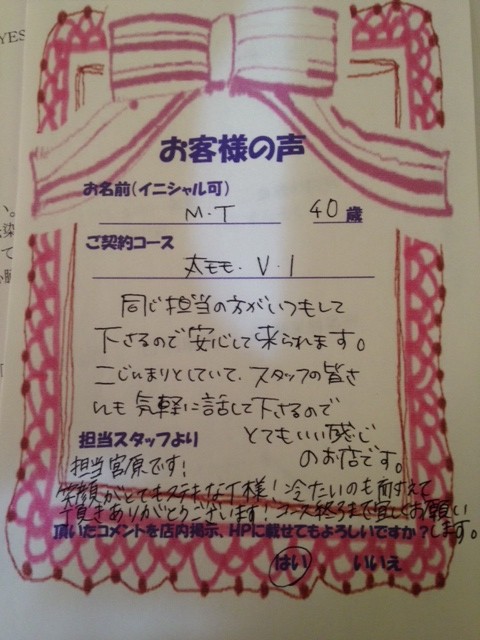 YES
お客様の声
お名前(イニシャル可)
M・T 40 歳
ご契約コース
太モモ・V・I
同じ担当の方がいつもして
下さるので安心して来られます。
こじんまりとしていて、スタッフの皆さ
んも気軽に話して下さるので
とてもいい感じ
のお店です。
担当スタッフより
担当宮原です!
笑顔がとてもステキなT様! 冷たいのも耐えて
頂きありがとうございます! コース終了まで宜しくお願い
します。
頂いたコメントを店内掲示、HPに載せてもよろしいですか?
はい いいえ